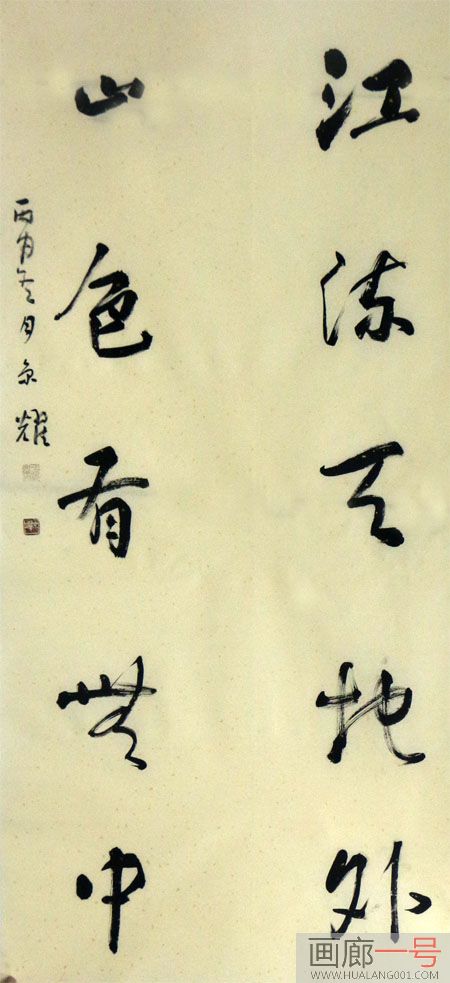 江流天地外
山色有无中
丙申冬月京耀
画廊一号
WWW.HUALANG001.COM